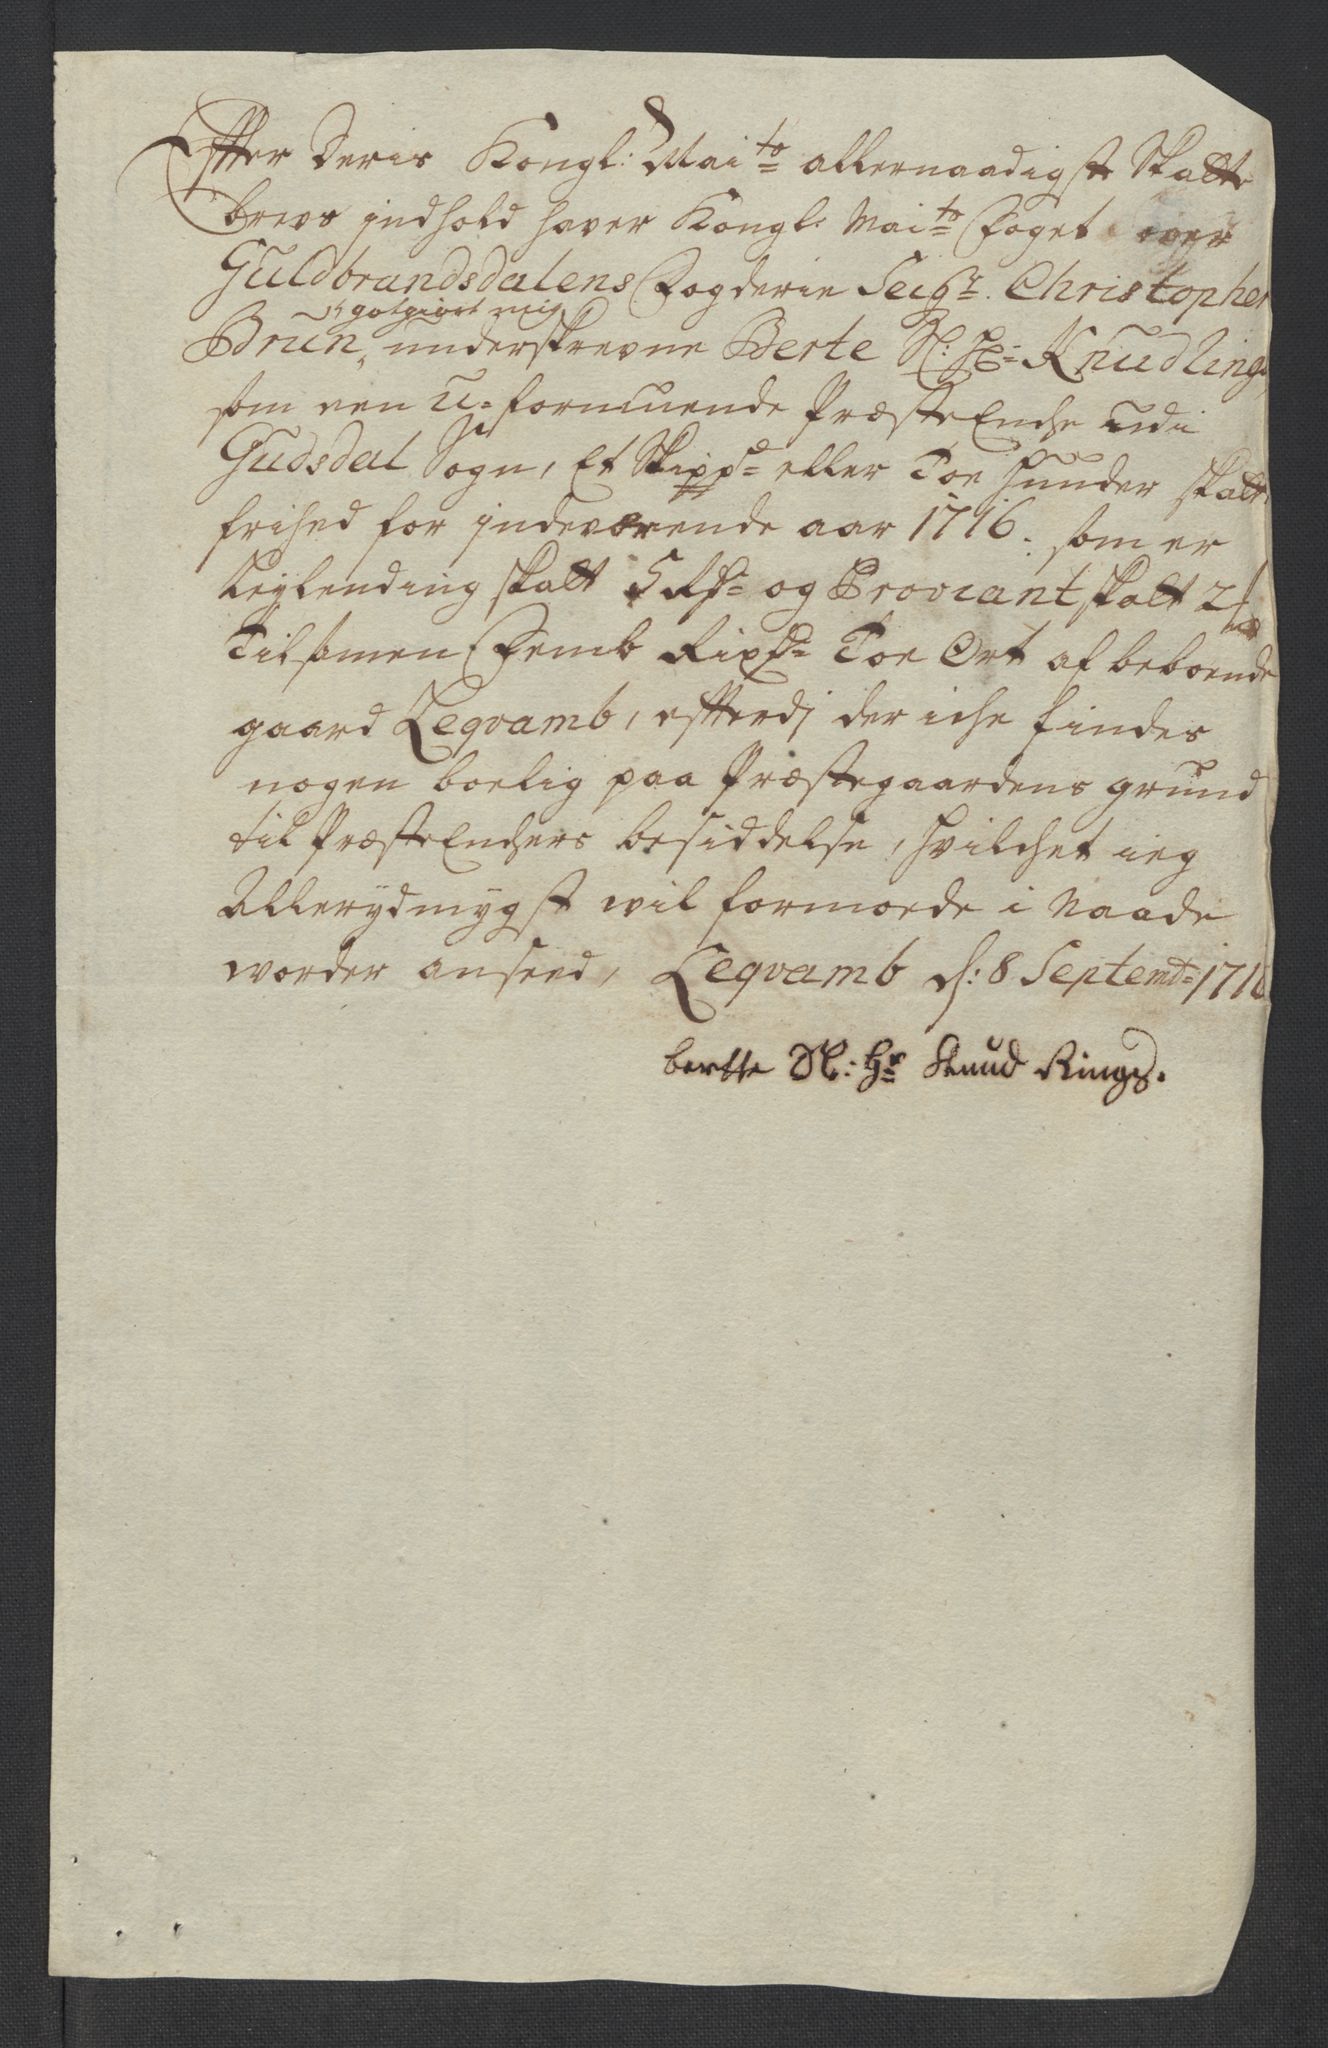 Effter Deris Kongl: Mai:to allernaadigste Skatte
brevs jndhold haver Kongl: Mai:to Foget over
Guldbrandsdalens Fogderie Seig:r Christopher
godtgiort mig
Brun, underskrevne Berte Sl: Hr: Knud Rings
som een u-formuende PræsteEnche udi
Gudsdal Sogn, Et Skipp:d eller Toe Hunder skatt
frihed for jndeværende aar 1716. som er
Leylending skatt 5 Rd:r og Proviant skatt 2
Tilsamen Femb Rixd:r Toe Ort af beboende
gaard Leqvamb, efterdj der iche findes
nogen boelig paa Præstegaardens grund
til PræsteEnchers besiddelse, hvilchet ieg
Allerydmygst vil formoede i Naade
worder anseed, Leqvamb d: 8 Septemb: 1716
bertte Sl: Hr Knud Rings.